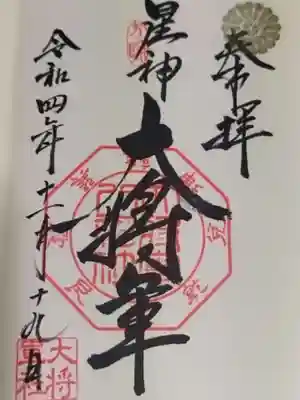 奉拝
星神
大将軍
令和四年十一月十九日
大将
軍社